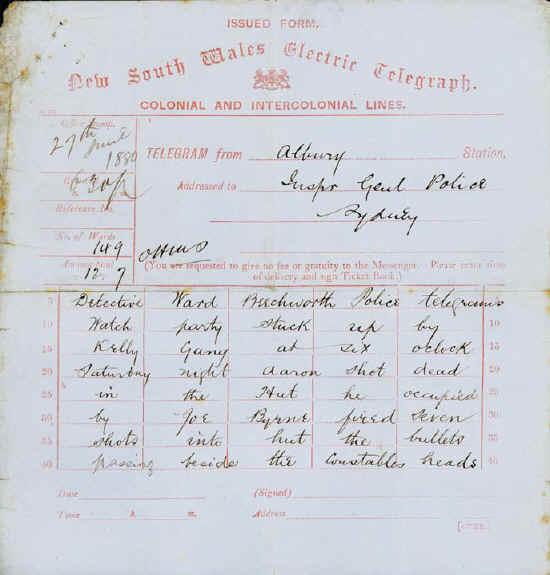 ISSUED FORM.
New South Wales Electric Telegraph.
COLONIAL AND INTERCOLONIAL LINES.
27th June
1880
TELEGRAM from Albury Station,
Addressed to Inspr Genl Police
Sydney
Reference No.
No. of Words
149
OHMS
12 7
(You are requested to give no fee or gratuity to the Messenger. Please enter time
of delivery and sign Ticket Book.)
5 Detective Ward Beechworth Police telegrams
10 Watch party stuck up by 10
15 Kelly Gang at six oclock 15
20 Saturday night aaron shot dead 20
25 in the Hut he occupied 25
30 by Joe Byrne fired seven 30
35 shots into hut the bullets 35
40 passing beside the Constables heads 40
Date (Signed)
Time h. m. Address